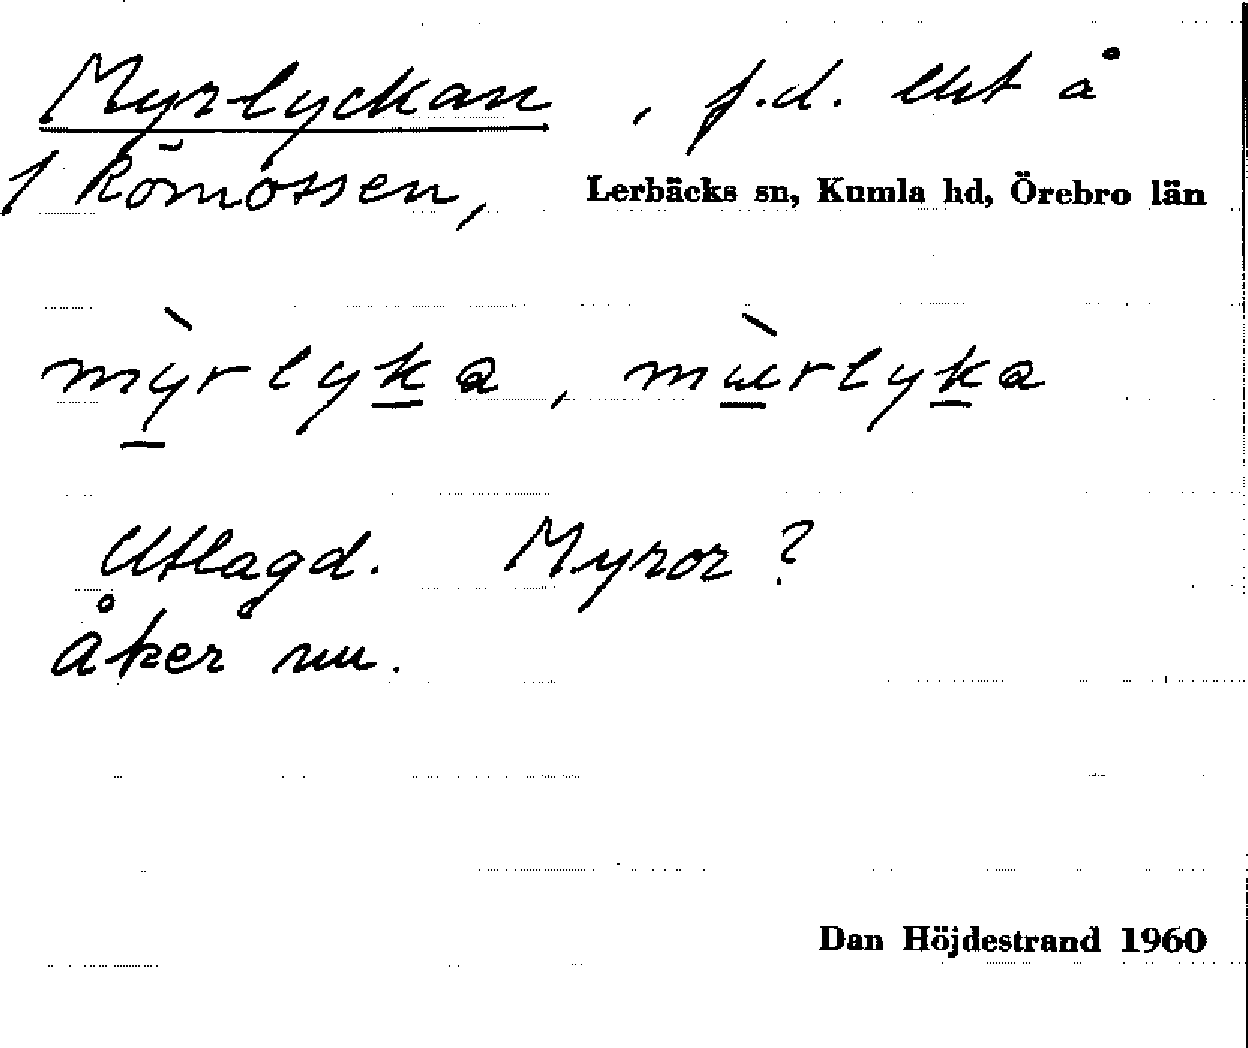 Myrlyckan, f.d. lht å
1 Römossen, Lerbäcks sn, Kumla hd, Örebro län
mỳrlyka, mùrlyka
Utlagd. Myror?
åker nu.
Dan Höjdestrand 1960